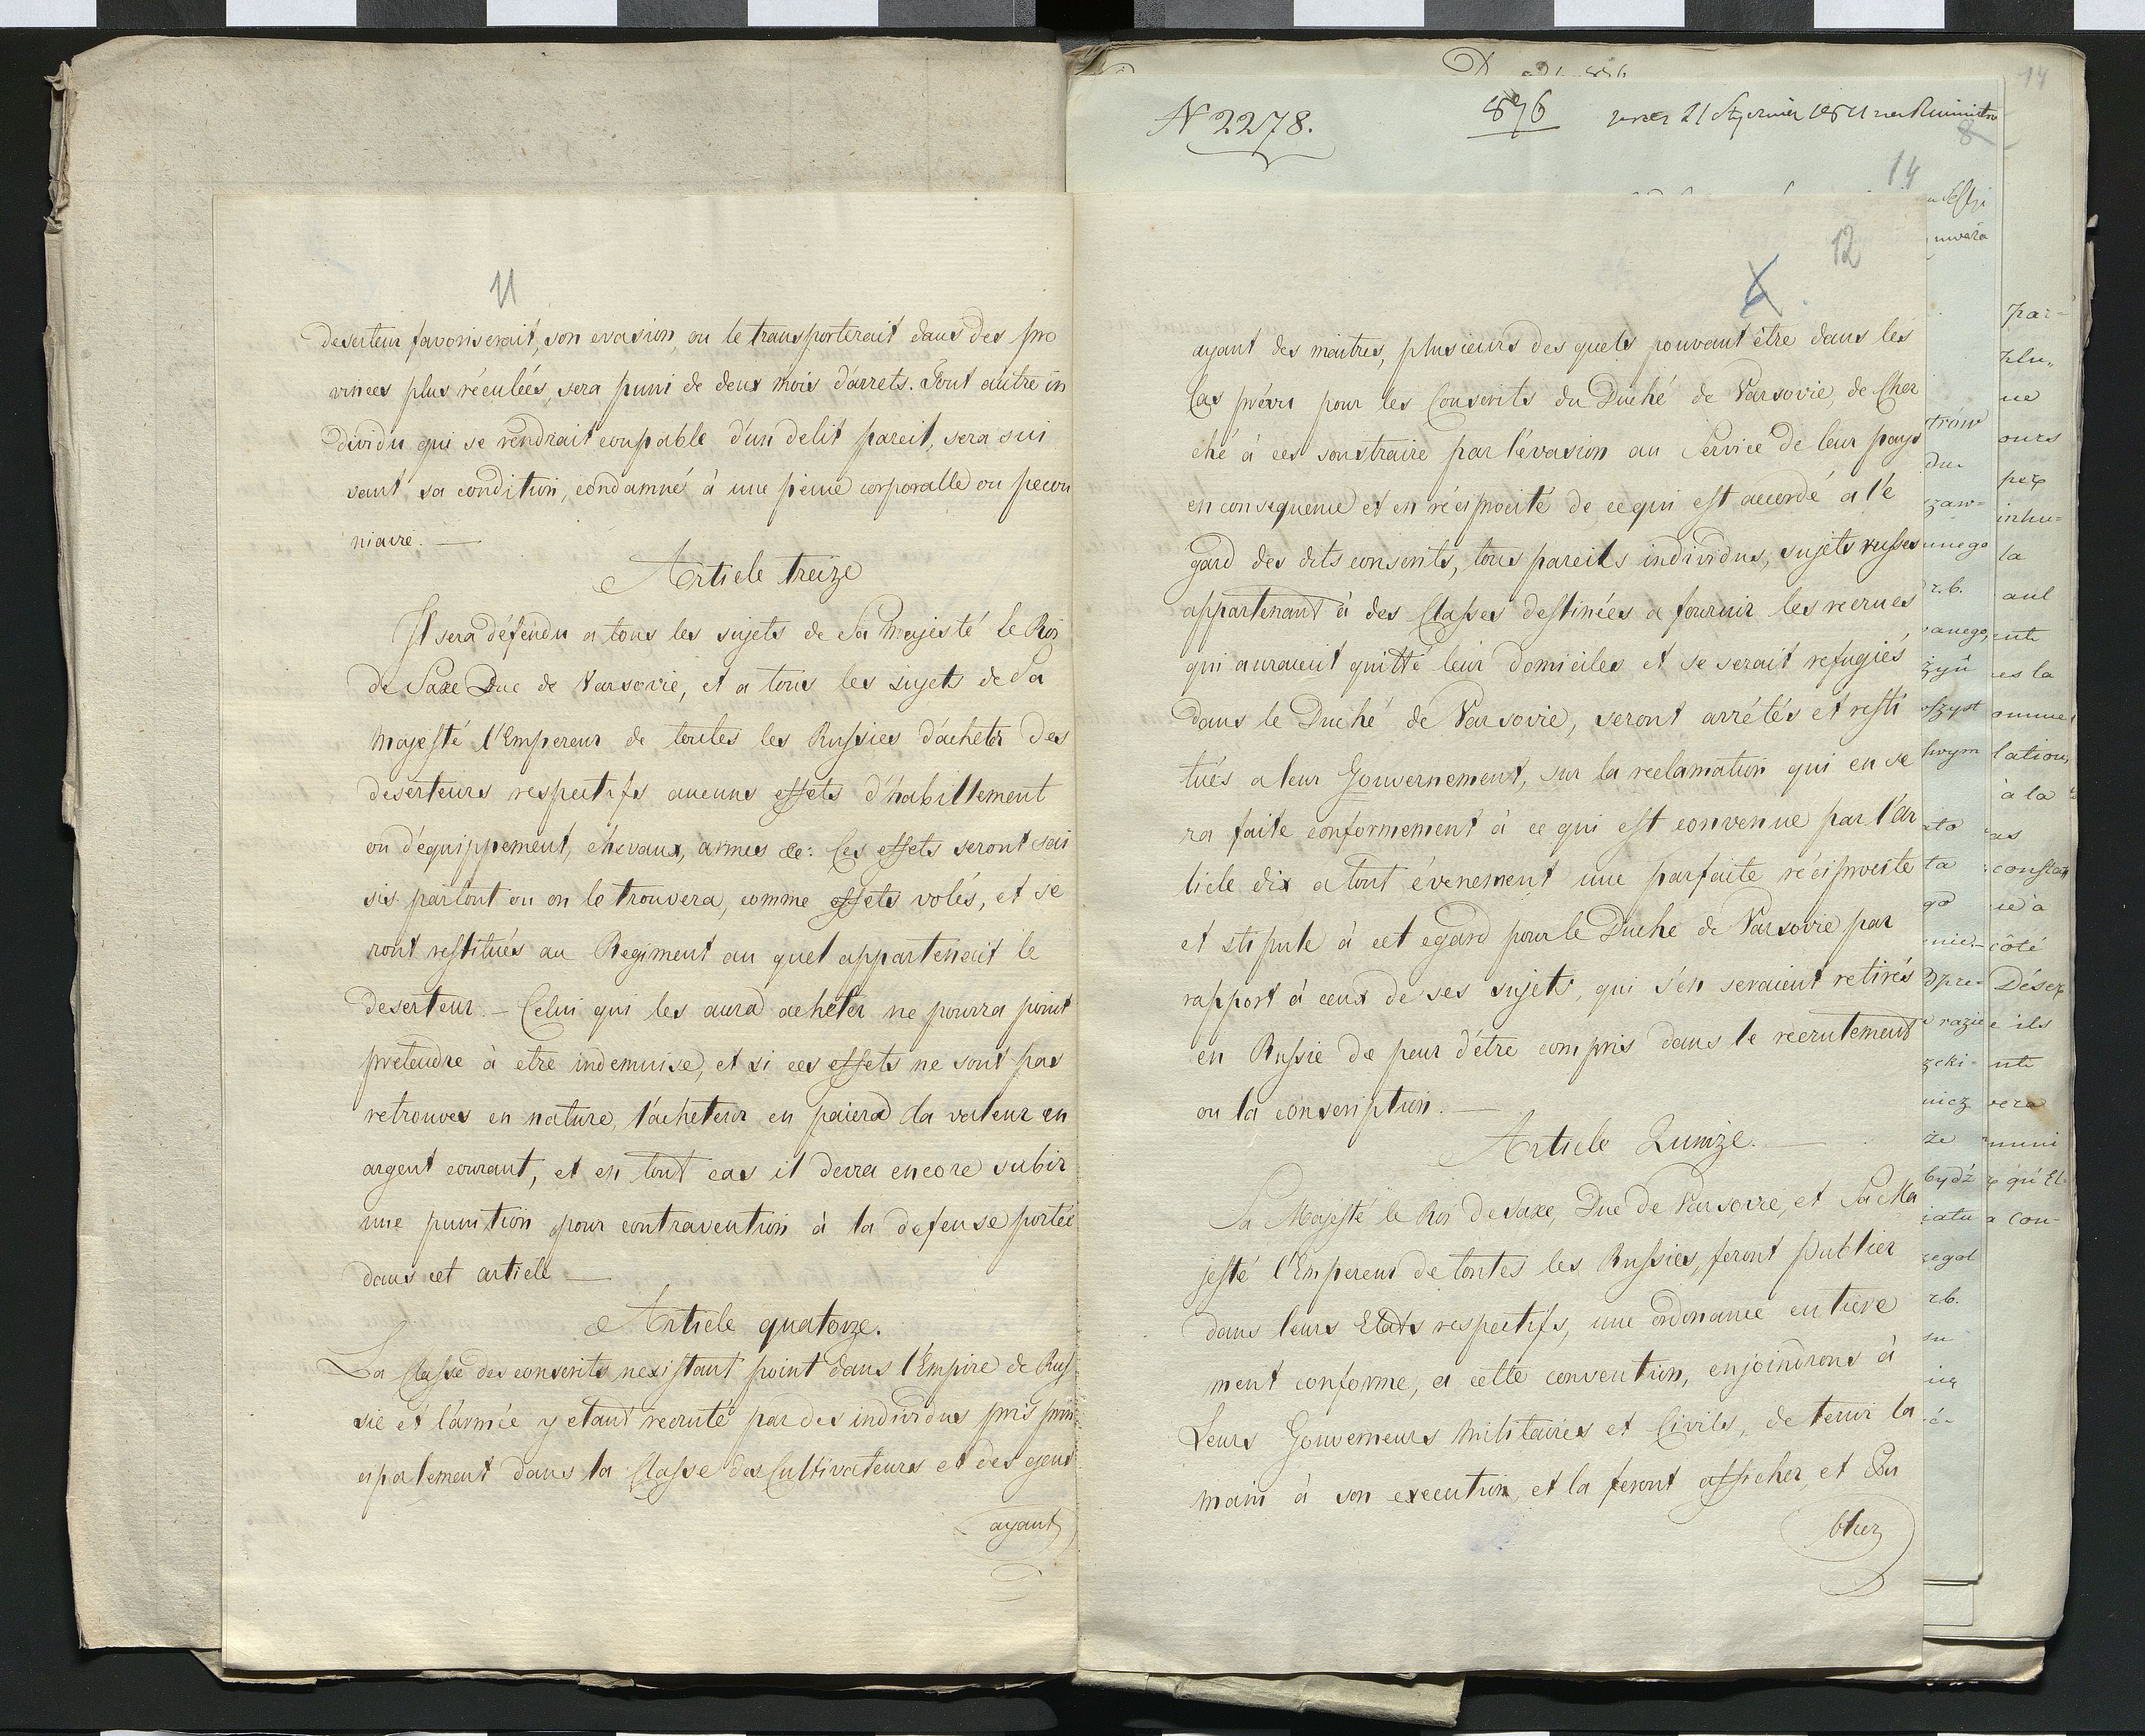 11
deserteur favoriserait, son evasion, ou le transporterait dans des pro
vinces plus réculeés, sera puni de deux mois d'arrets. Tout autre in
dividu qui se rendrait coupable d'un delit pareil, sera sui
vant sa condition, condamné à une peine corporalle ou pecun
niaire. —
Article treize
Il sera défendu a tous les sujets de Sa Majesté le Roi
de Saxe Duc de Varsovie, et a tous les sujets de Sa
Majesté l'Empereur de toutes les Russies d'acheter des
deserteurs respectifs aucuns effets d'habillement
ou d'équippement, chevaux, armes &c: Ces effets seront sai
sis partout ou on le trouvera, comme effets volés, et se
ront restitués au Regiment au quel appartenait le
deserteur. — Celui qui les aura acheter ne pourra point
pretendre à etre indemnise, et si ces effets ne sont pas
retrouves en nature, l'acheteur en paiera la valeur en
argent courant, et en tout cas il devra encore subir
une punition pour contravention à la defense portée
dans cet article —
Article quatorze.
La Classe des conscrits nexistant point dans l'Empire de Rus
sie et l'armée y etant recruté par des individus pris prin
cipalement dans la Classe des Cultivateurs et des gens
ayant
N 2278.
876
21
14
8
14
12
6
ayant des maitres, plusieurs des quels pouvant être dans les
Cas prévu pour les Conscrits du Duché de Varsovie, de Cher
ché à ces soustraire par l'évasion au Service de leur pays
en consequence et en réciprocité de ce qui est accordé a l'é
gard des dits conscrits, tous pareils individus, sujets russes
appartenant à des Classes destinées a fournir les recrues
qui auraient quitté leur domiciles et se serait refugiés
dans le Duché de Varsovie, seront arrétés et resti
tués a leur Gouvernement, sur la reclamation qui en se
ra faite conformement à ce qui est convenue par l'ar
ticle dix a tout évenement une parfaite réciprocite
et stipule à cet egard pour le Duche de Varsovie par
rapport à ceux de ses sujets, qui s'en seraient retirés
en Russie de peur d'étre compris dans le recrutement
ou la conscription. —
Article Quinze. —
Sa Majesté le Roi de Saxe, Duc de Varsovie, et Sa Ma
jesté l'Empereur de toutes les Russies, feront publier
dans leurs Etats respectifs, une ordonance entiere
ment conforme, a cette convention, enjoindrons à
Leurs Gouverneurs Militaires et Civils, de tenir la
main à son execution, et la feront afficher, et Pu
blier